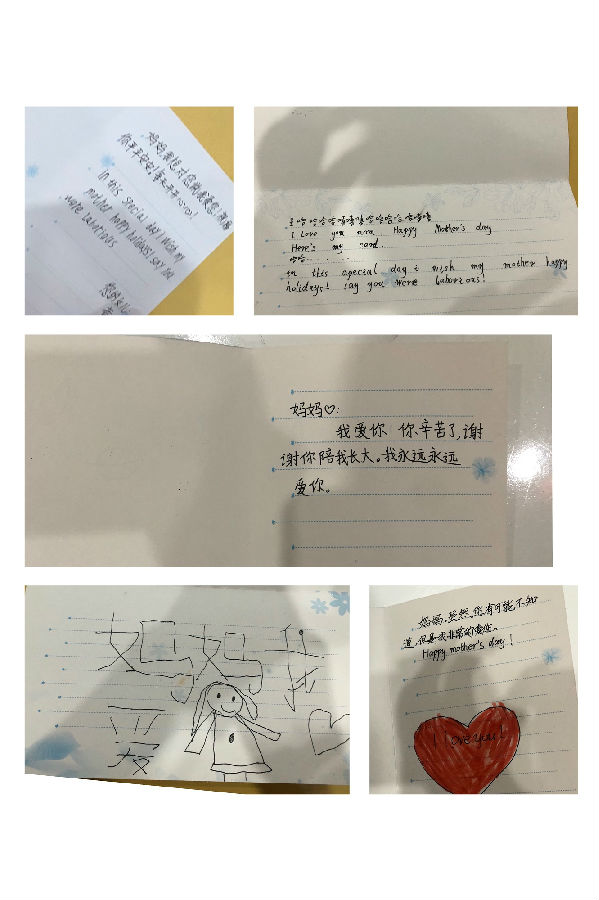 妈妈我想对您说我爱您,祝
你平平安安!每天开开心心!
In this special day I wish my
mother happy holidays! say you
were laborious
哈哈哈哈嘻嘻嘻哈哈哈哈哈嘻嘻
I Love you are Happy Mother's day
Here's my card.
哈哈......
in this special day i wish my mother happy
holidays! say you were laborious!
妈妈♡:
我爱你 你辛苦了,谢
谢你陪我长大。我永远永远
爱你。
妈妈我
爱
妈妈,虽然,您有可能不知
道,但是我非常的爱您。
Happy mother's day!
I love you!